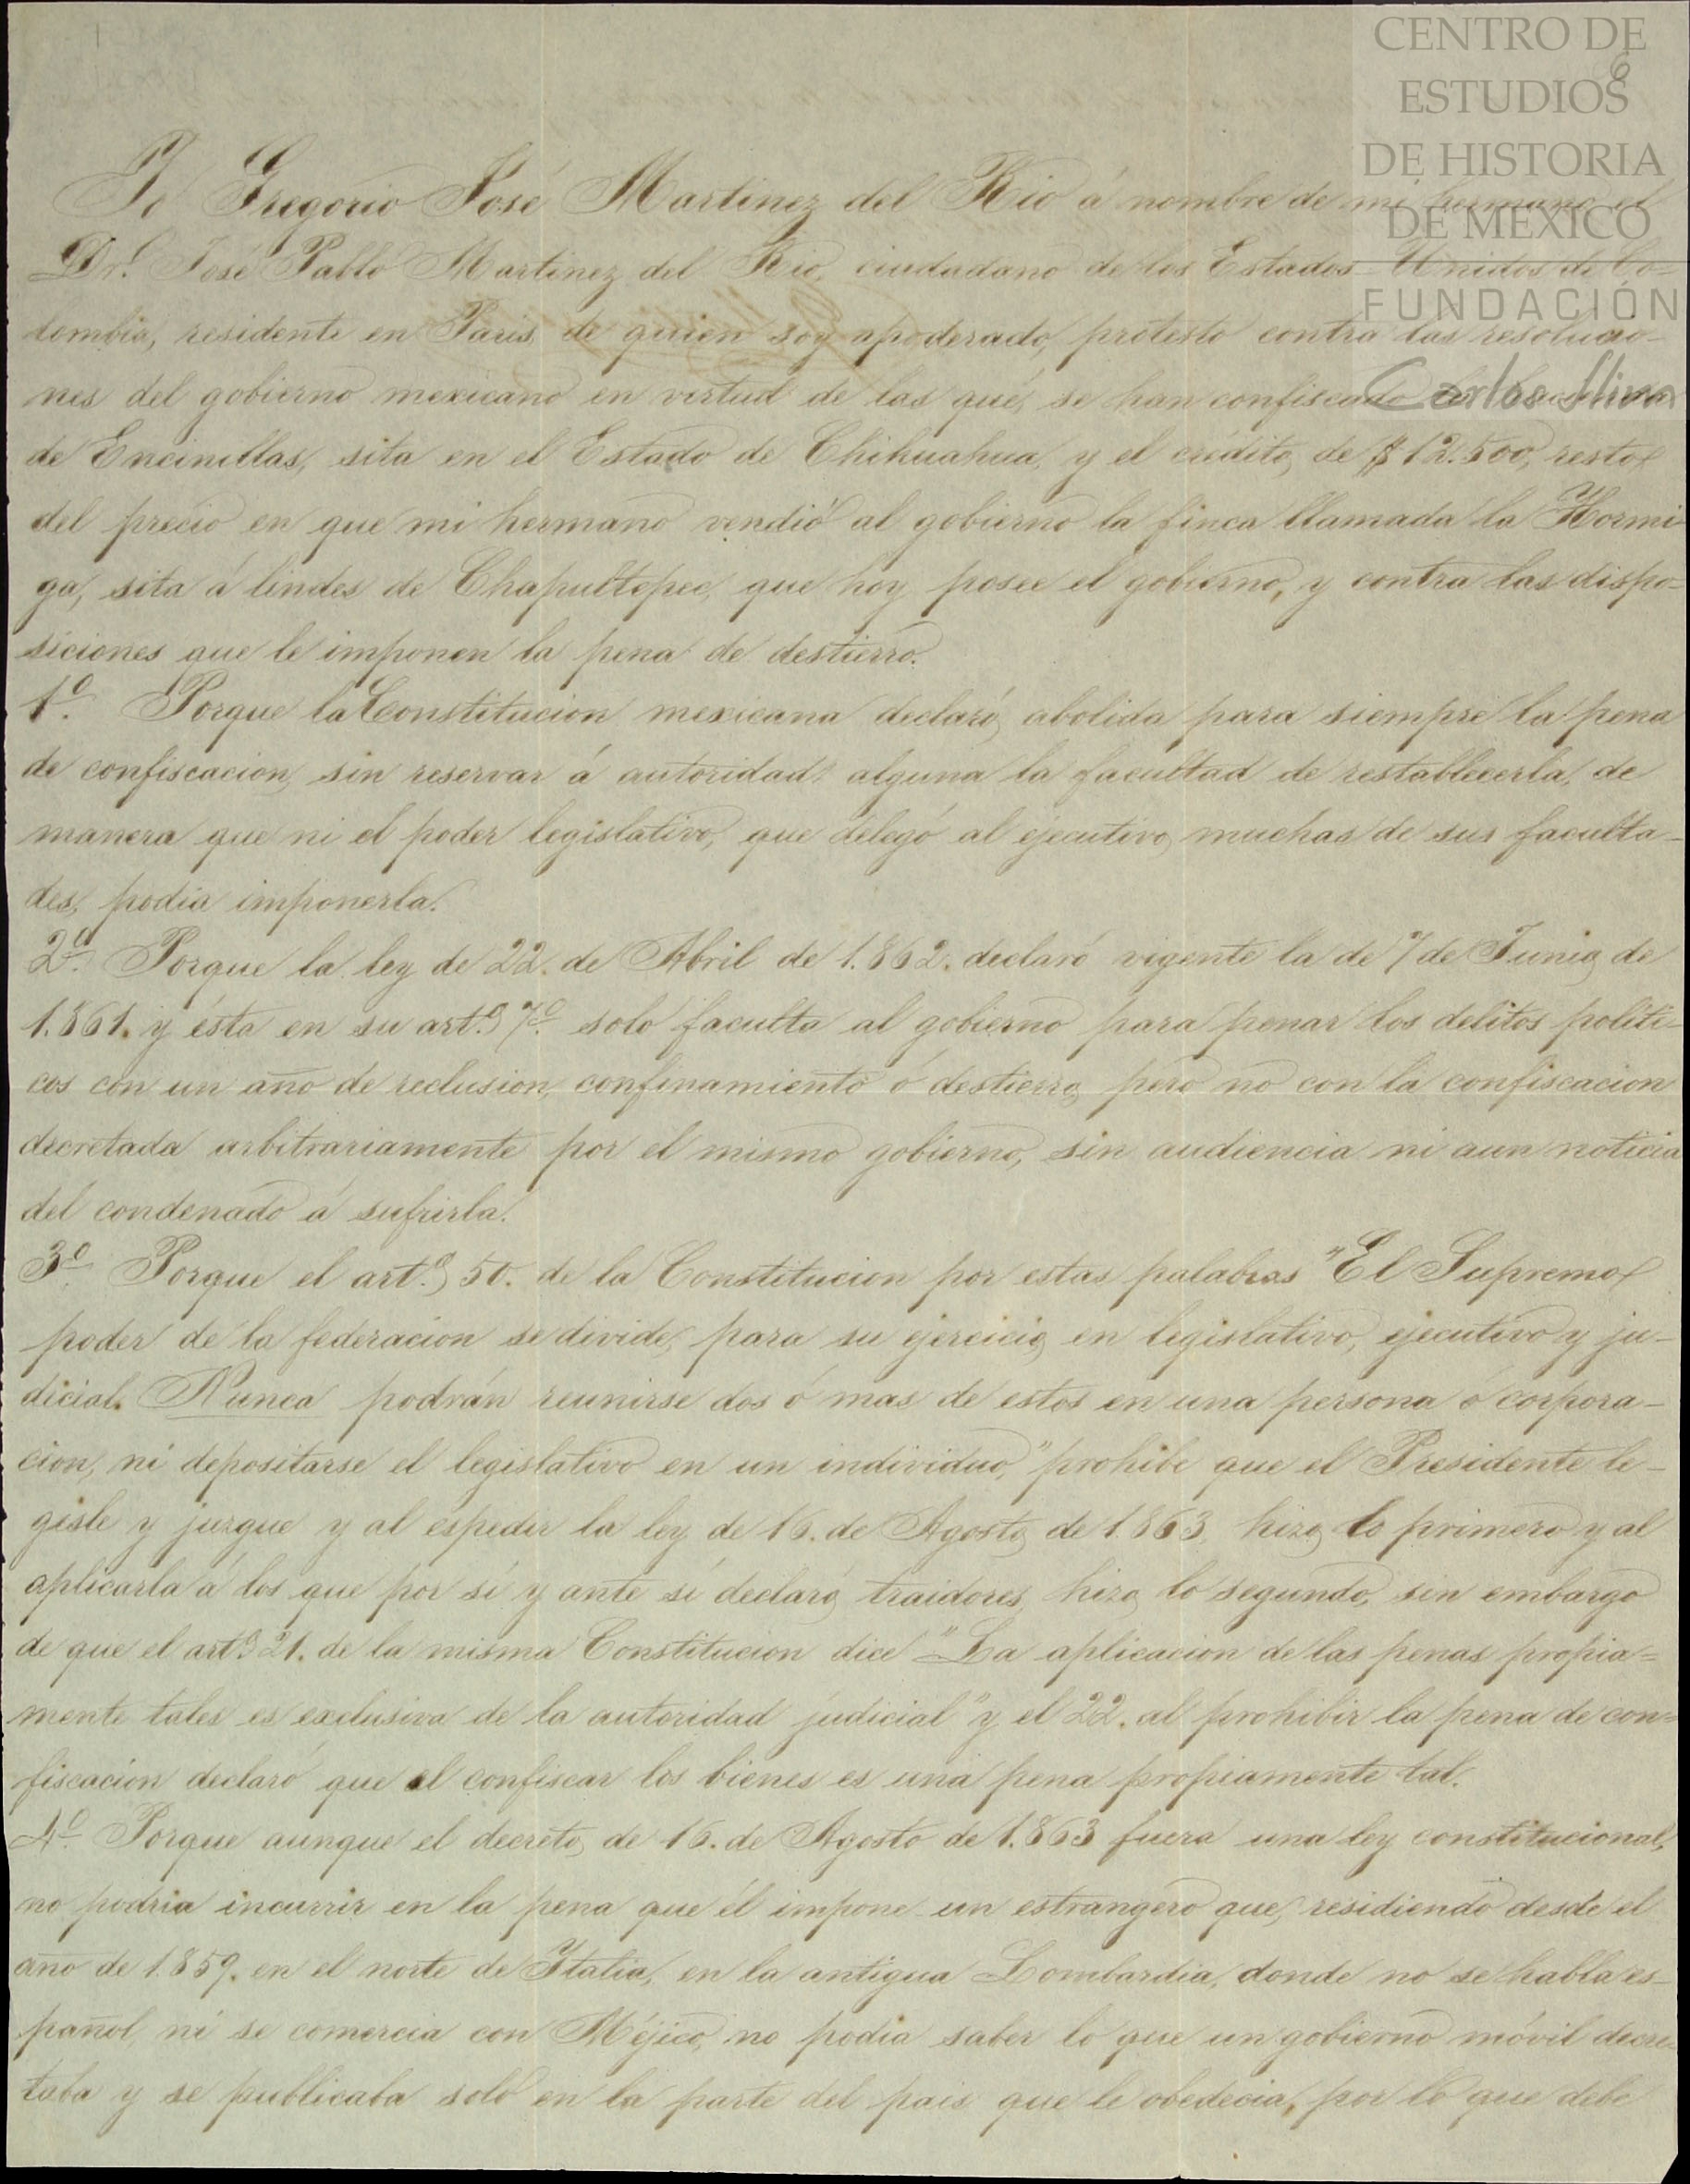 CENTRO DE
ESTUDIOS
DE HISTORIA
DE MEXICO
FUNDACIÓN
Carlos Slim
6
Yo Gregorio José Martinez del Rio á nombre de mi hermano el
Dr. José Pablo Martinez del Rio, ciudadano de los Estados-Unidos de Co-
lombia, residente en Paris, de quien soy apoderado, protesto contra las resolucio-
nes del gobierno mexicano en virtud de las qué, se han confiscado
de Encinillas, sita en el Estado de Chihuahua, y el crédito, de $12.500, resto
del precio en que mi hermano vendió al gobierno la finca llamada la Hormi-
ga, sita á lindes de Chapultepec, que hoy posee el gobierno, y contra las dispo-
siciones que le imponen la pena de destierro.
1º. Porque la Constitucion mexicana declaró, abolida para siempre la pena
de confiscacion, sin reservar á autoridad alguna la facultad de restablecerla, de
manera que ni el poder legislativo, que delegó al ejecutivo muchas de sus faculta-
des, podia imponerla.
2º. Porque la ley de 22. de Abril de 1.862. declaró vigente la de 7 de Junio de
1.861. y ésta en su art.º 7º. solo faculta al gobierno para penar los delitos politi-
cos con un año de reclusion, confinamiento ó destierro, pero no con la confiscacion
decretada arbitrariamente por el mismo gobierno, sin audiencia ni aun noticia
del condenado á sufrirla.
3º. Porque el art.º 50. de la Constitucion por estas palabras "El Supremo
poder de la federacion se divide, para su ejercicio, en legislativo, ejecutivo y ju-
dicial. Nunca podrán reunirse dos ó mas de estos en una persona ó corpora-
cion, ni depositarse el legislativo en un individuo," prohibe que el Presidente le-
gisle y juzgue y al espedir la ley de 16. de Agosto de 1.863. hizo lo primero y al
aplicarla á los que por sí y ante sí declaró traidores, hizo lo segundo, sin embargo
de que el art.º 21. de la misma Constitucion dice "La aplicacion de las penas propia=
mente tales es exclusiva de la autoridad judicial" y el 22. al prohibir la pena de con=
fiscacion declaró que el confiscar los bienes es una pena propiamente tal.
4º. Porque aunque el decreto de 16. de Agosto de 1.863 fuera una ley constitucional,
no podria incurrir en la pena que él impone un estrangero que, residiendo desde el
año de 1.859. en el norte de Italia, en la antigua Lombardia, donde no se habla es-
pañol, ni se comercia con Méjico, no podia saber lo que un gobierno móvil decre-
taba y se publicaba solo en la parte del pais que le obedecia, por lo que debe